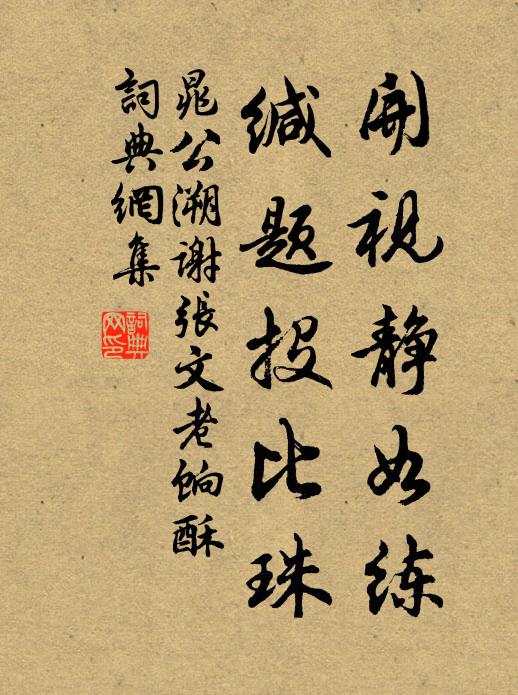 開視静如練
緘題投比珠
晁公溯謝張文老餉酥
詞典網集
詞典網印